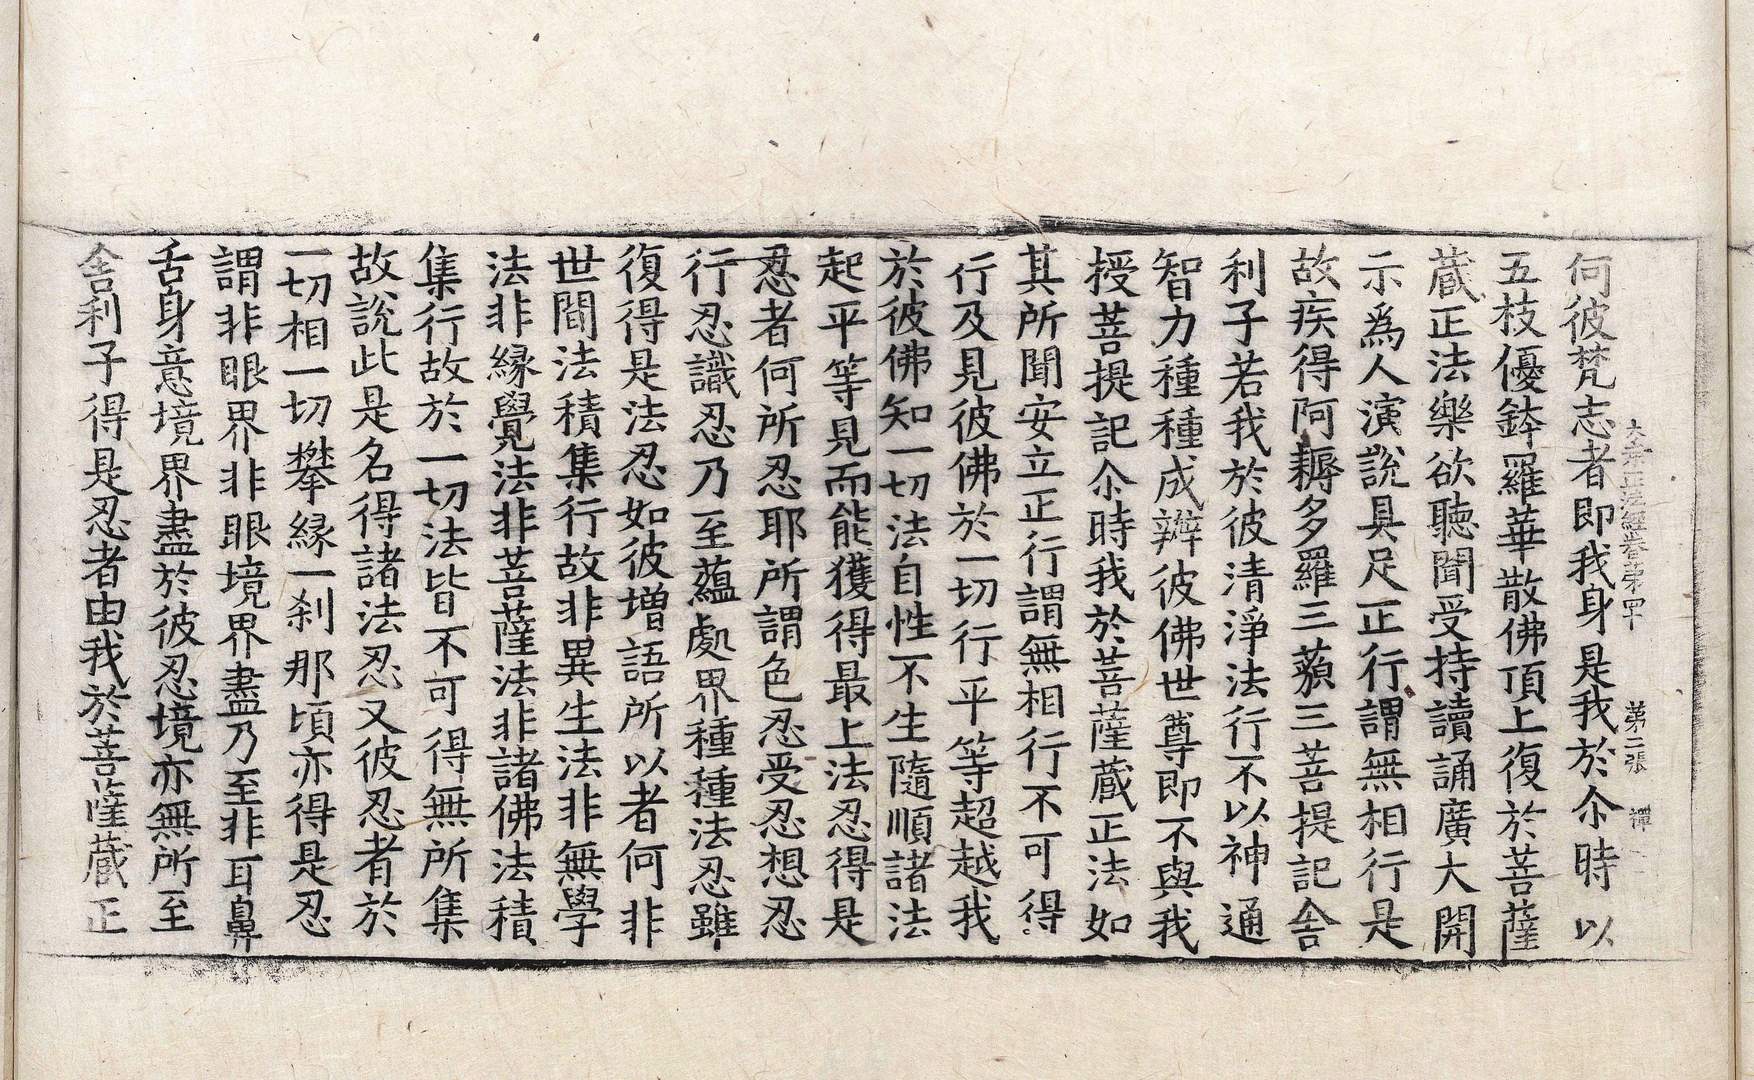 大乘正法經卷第四十　第二張　禪
何彼梵志者即我身是我於尒時以
五枝優鉢羅華散佛頂上復於菩薩
蔵正法樂欲聽聞受持讀誦廣大開
示爲人演說具足正行謂無相行是
故疾得阿耨多羅三藐三菩提記舍
利子若我於彼清淨法行不以神通
智力種種成辦彼佛世尊即不與我
授菩提記尒時我於菩薩蔵正法如
其所聞安立正行謂無相行不可得
行及見彼佛於一切行平等超越我
於彼佛知一切法自性不生隨順諸法
起平等見而能獲得最上法忍得是
忍者何所忍耶所謂色忍受忍想忍
行忍識忍乃至蘊處界種種法忍雖
復得是法忍如彼增語所以者何非
世間法積集行故非異生法非無學
法非緣覺法非菩薩法非諸佛法積
集行故於一切法皆不可得無所集
故說此是名得諸法忍又彼忍者於
一切相一切攀緣一刹那頃亦得是忍
謂非眼界非眼境界盡乃至非耳鼻
舌身意境界盡於彼忍境亦無所至
舍利子得是忍者由我於菩薩蔵正